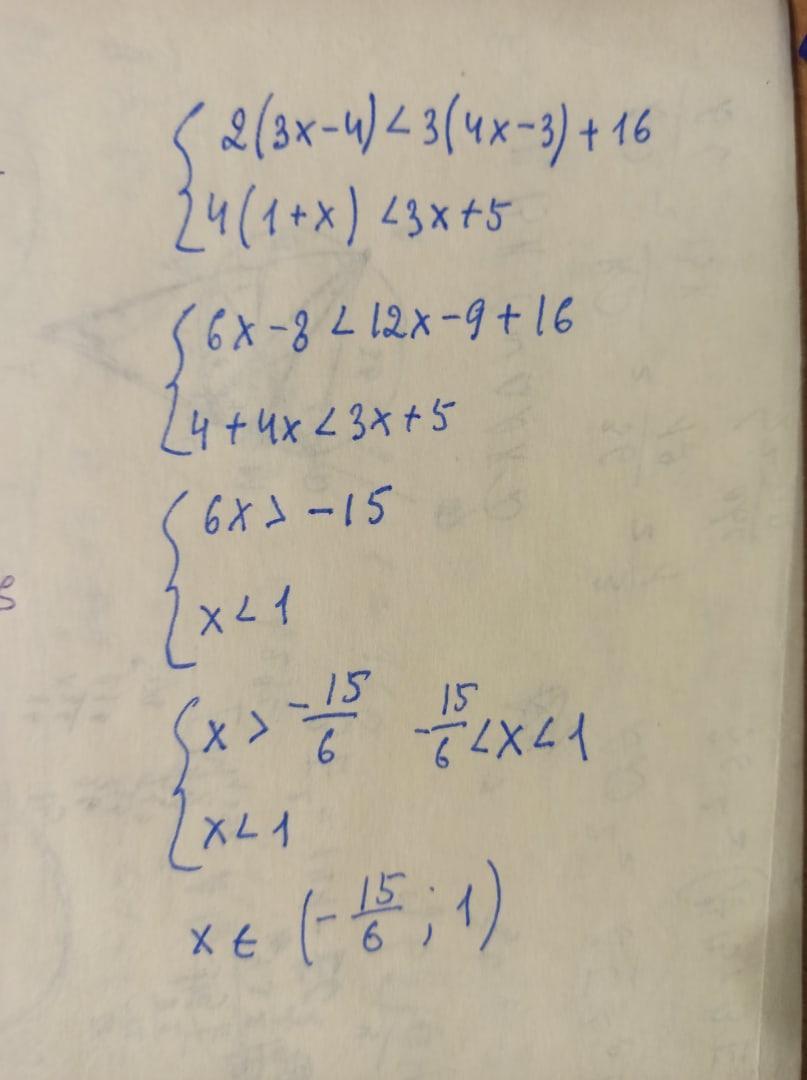 2(3x-4)<3(4x-3)+16
4(1+x)<3x+5
6x-8<12x-9+16
4+4x<3x+5
6x>-15
x<1
x>-15/6   -15/6<x<1
x<1
x∈(-15/6;1)